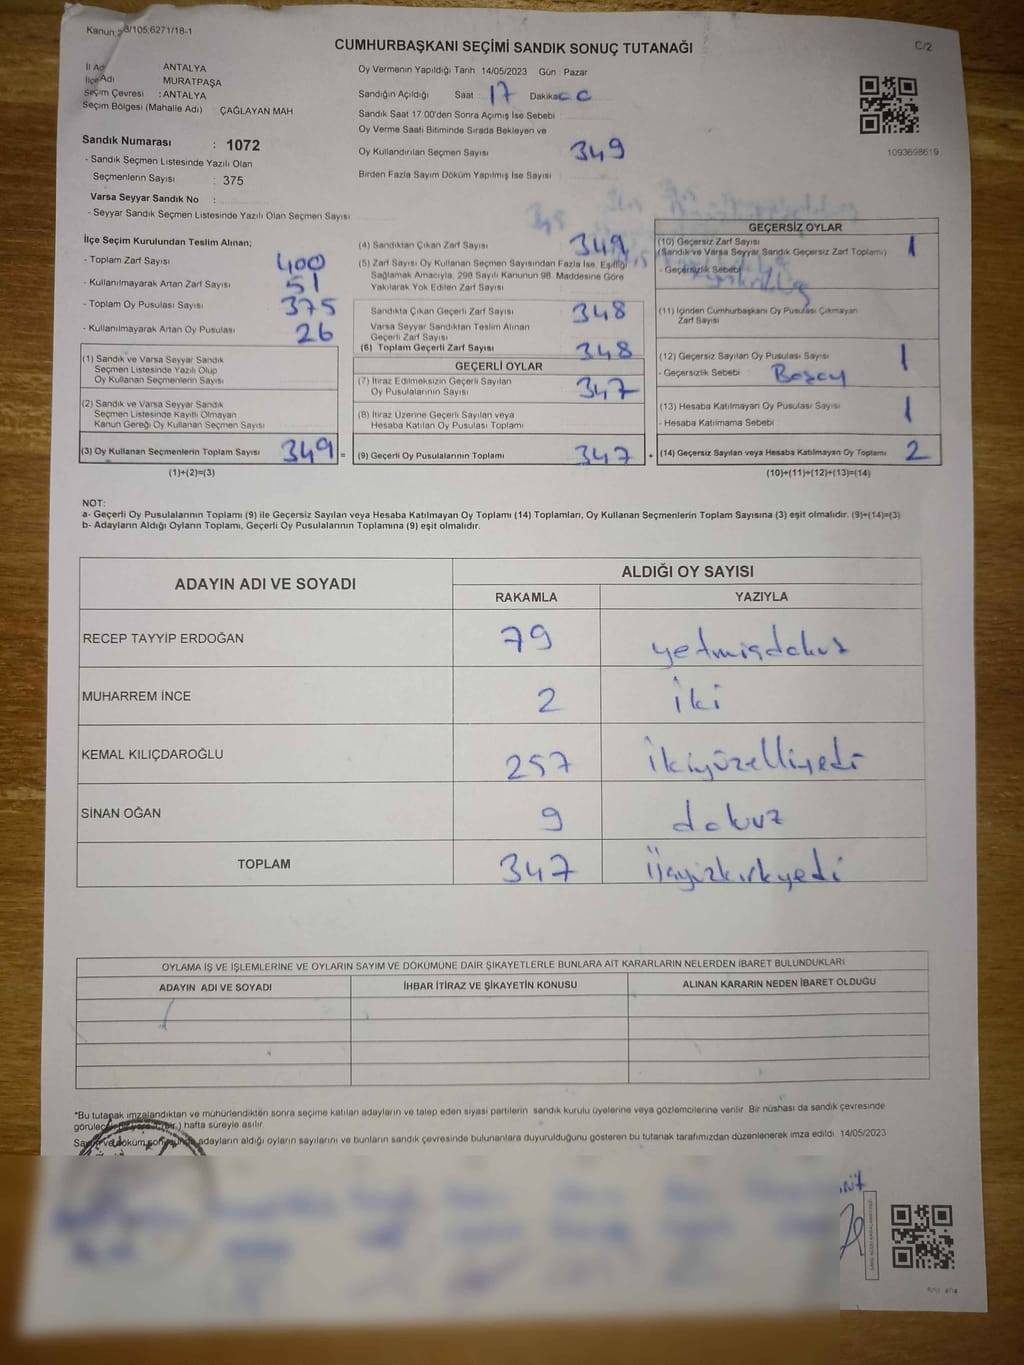 Kanun:298/105,6271/18-1
CUMHURBAŞKANI SEÇİMİ SANDIK SONUÇ TUTANAĞI
C/2
İl Adı ANTALYA
İlçe Adı MURATPAŞA
Seçim Çevresi : ANTALYA
Seçim Bölgesi (Mahalle Adı) ÇAĞLAYAN MAH
Sandık Numarası : 1072
- Sandık Seçmen Listesinde Yazılı Olan
Seçmenlerin Sayısı : 375
Varsa Seyyar Sandık No :
- Seyyar Sandık Seçmen Listesinde Yazılı Olan Seçmen Sayısı
Oy Vermenin Yapıldığı Tarih 14/05/2023 Gün Pazar
Sandığın Açıldığı Saat : 17 Dakika
Sandık Saat 17.00'den Sonra Açımış İse Sebebi
Oy Verme Saati Bitiminde Sırada Bekleyen ve
Oy Kullandırılan Seçmen Sayısı 349
Birden Fazla Sayım Döküm Yapılmış İse Sayısı
1093698619
İlçe Seçim Kurulundan Teslim Alınan;
- Toplam Zarf Sayısı 400
- Kullanılmayarak Artan Zarf Sayısı 51
- Toplam Oy Pusulası Sayısı 375
- Kullanılmayarak Artan Oy Pusulası 26
(1) Sandık ve Varsa Seyyar Sandık
Seçmen Listesinde Yazılı Olup
Oy Kullanan Seçmenlerin Sayısı
(2) Sandık ve Varsa Seyyar Sandık
Seçmen Listesinde Kayıtlı Olmayan
Kanun Gereği Oy Kullanan Seçmen Sayısı
(3) Oy Kullanan Seçmenlerin Toplam Sayısı 349 =
(1)+(2)=(3)
(4) Sandıktan Çıkan Zarf Sayısı 349
(5) Zarf Sayısı Oy Kullanan Seçmen Sayısından Fazla İse, Eşitliği
Sağlamak Amacıyla, 298 Sayılı Kanunun 98. Maddesine Göre
Yakılarak Yok Edilen Zarf Sayısı
Sandıkta Çıkan Geçerli Zarf Sayısı 348
Varsa Seyyar Sandıktan Teslim Alınan
Geçerli Zarf Sayısı
(6) Toplam Geçerli Zarf Sayısı 348
GEÇERLİ OYLAR
(7) İtiraz Edilmeksizin Geçerli Sayılan
Oy Pusulalarının Sayısı 347
(8) İtiraz Üzerine Geçerli Sayılan veya
Hesaba Katılan Oy Pusulası Toplamı
(9) Geçerli Oy Pusulalarının Toplamı 347 +
GEÇERSİZ OYLAR
(10) Geçersiz Zarf Sayısı 1
(Sandık ve Varsa Seyyar Sandık Geçersiz Zarf Toplamı)
- Geçersizlik Sebebi
(11) İçinden Cumhurbaşkanı Oy Pusulası Çıkmayan
Zarf Sayısı
(12) Geçersiz Sayılan Oy Pusulası Sayısı 1
- Geçersizlik Sebebi :
(13) Hesaba Katılmayan Oy Pusulası Sayısı 1
- Hesaba Katılmama Sebebi :
(14) Geçersiz Sayılan veya Hesaba Katılmayan Oy Toplamı 2
(10)+(11)+(12)+(13)=(14)
NOT:
a- Geçerli Oy Pusulalarının Toplamı (9) ile Geçersiz Sayılan veya Hesaba Katılmayan Oy Toplamı (14) Toplamları, Oy Kullanan Seçmenlerin Toplam Sayısına (3) eşit olmalıdır. (9)+(14)=(3)
b- Adayların Aldığı Oyların Toplamı, Geçerli Oy Pusulalarının Toplamına (9) eşit olmalıdır.
ADAYIN ADI VE SOYADI
ALDIĞI OY SAYISI
RAKAMLA YAZIYLA
RECEP TAYYİP ERDOĞAN 79 yetmişdokuz
MUHARREM İNCE 2 iki
KEMAL KILIÇDAROĞLU 257 ikiyüzelliyedi
SİNAN OĞAN 9 dokuz
TOPLAM 347 üçyüzkırkyedi
OYLAMA İŞ VE İŞLEMLERİNE VE OYLARIN SAYIM VE DÖKÜMÜNE DAİR ŞİKAYETLERLE BUNLARA AİT KARARLARIN NELERDEN İBARET BULUNDUKLARI
ADAYIN ADI VE SOYADI İHBAR İTİRAZ VE ŞİKAYETİN KONUSU ALINAN KARARIN NEDEN İBARET OLDUĞU
*Bu tutanak imzalandıktan ve mühürlendikten sonra seçime katılan adayların ve talep eden siyasi partilerin sandık kurulu üyelerine veya gözlemcilerine verilir. Bir nüshası da sandık çevresinde
hafta süreyle asılır.
adayların aldığı oyların sayılarını ve bunların sandık çevresinde bulunanlara duyurulduğunu gösteren bu tutanak tarafımızdan düzenlenerek imza edildi. 14/05/2023